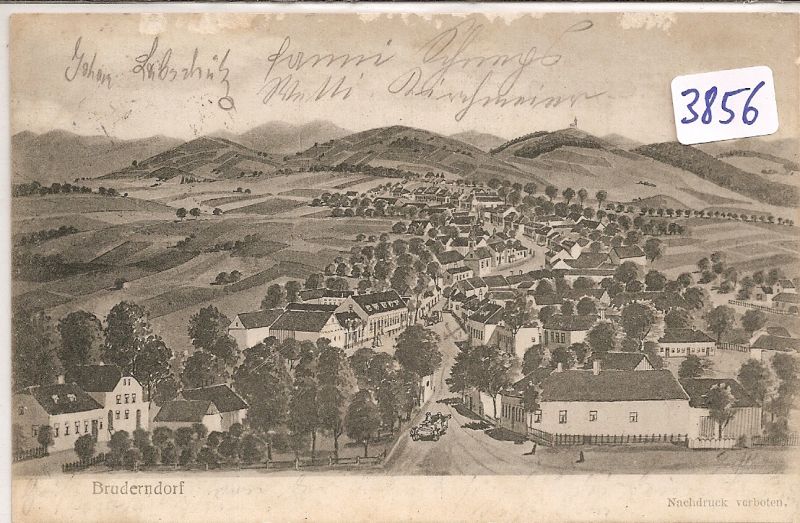 Johan Leibschütz fanni
Welli Kirchmeier
3856
Bruderndorf
Nachdruck verboten.